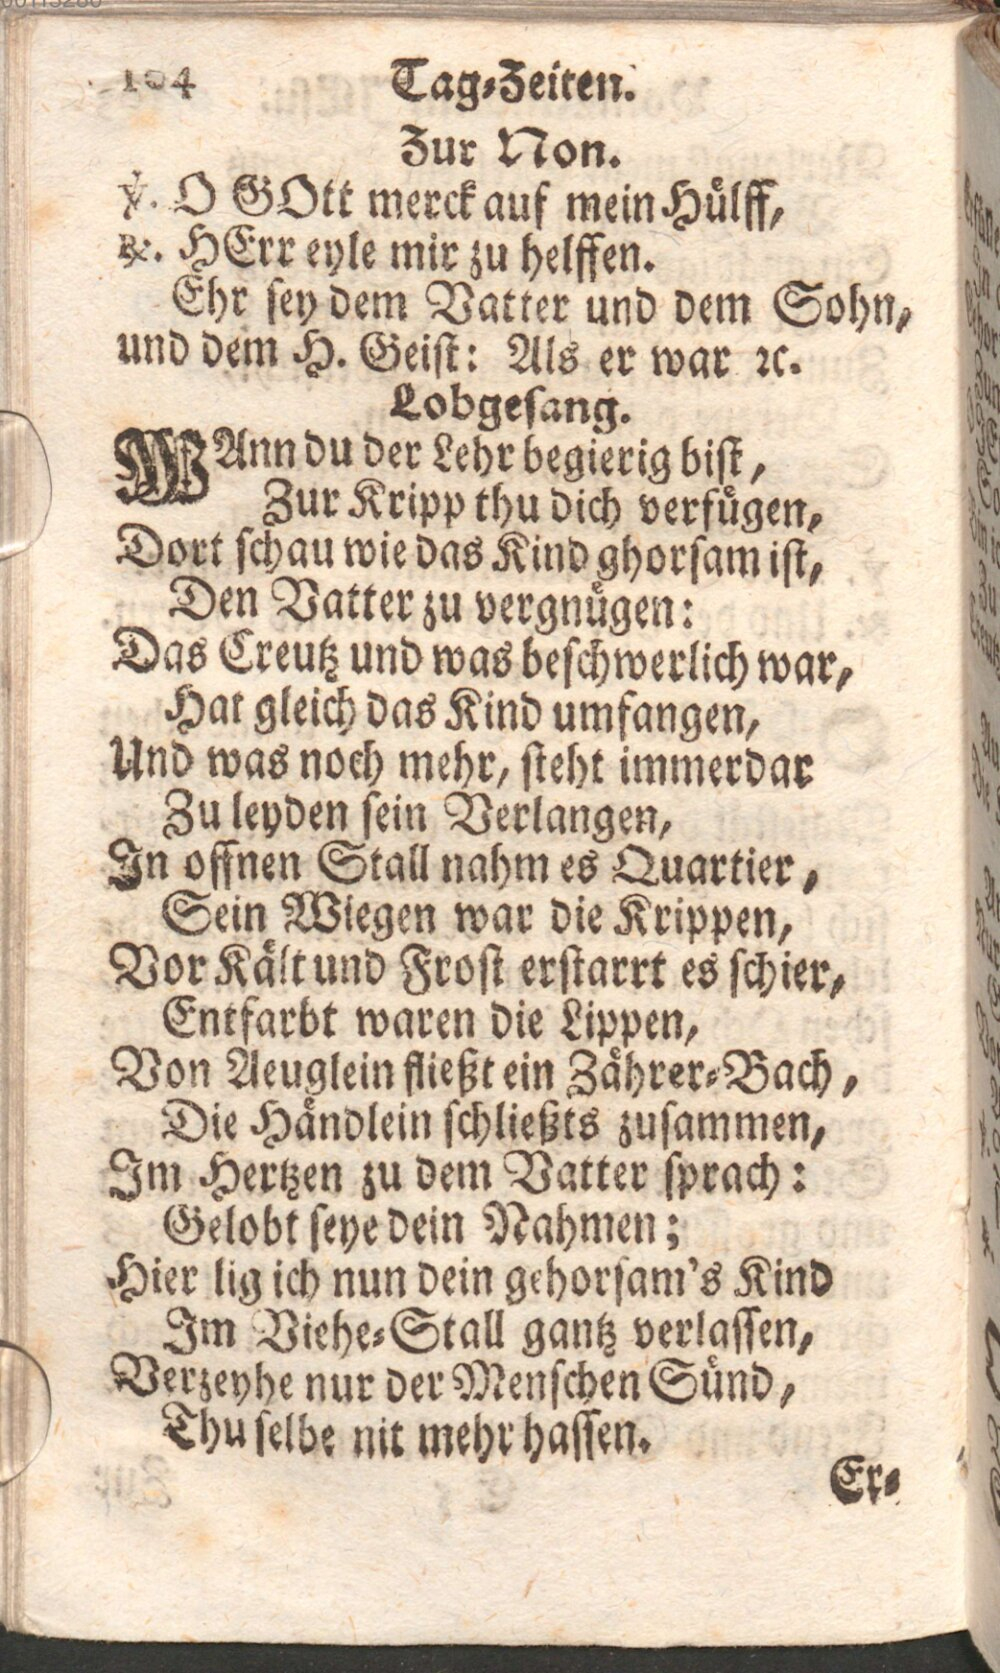 104 Tag-Zeiten.
Zur Non.
℣. O GOtt merck auf mein Hülff,
℟. HErr eyle mir zu helffen.
Ehr sey dem Vatter und dem Sohn,
und dem H. Geist: Als er war ꝛc.
Lobgesang.
WAnn du der Lehr begierig bist,
Zur Kripp thu dich verfügen,
Dort schau wie das Kind ghorsam ist,
Den Vatter zu vergnügen:
Das Creutz und was beschwerlich war,
Hat gleich das Kind umfangen,
Und was noch mehr, steht immerdar
Zu leyden sein Verlangen,
In offnen Stall nahm es Quartier,
Sein Wiegen war die Krippen,
Vor Kält und Frost erstarrt es schier,
Entfarbt waren die Lippen,
Von Aeuglein fließt ein Zährer-Bach,
Die Händlein schließts zusammen,
Im Hertzen zu dem Vatter sprach:
Gelobt seye dein Nahmen;
Hier lig ich nun dein gehorsam's Kind
Im Viehe-Stall gantz verlassen,
Verzeyhe nur der Menschen Sünd,
Thu selbe nit mehr hassen.
Er-